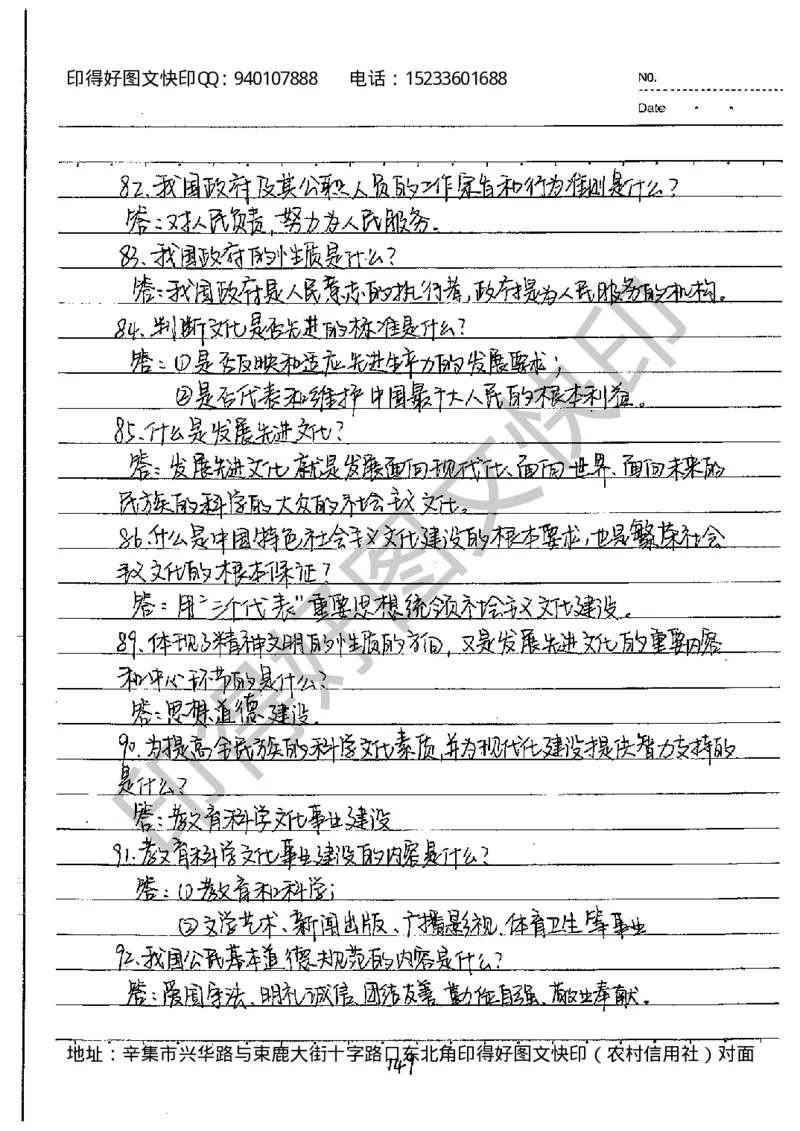 印得好图文快印QQ：940107888 电话：15233601688
No.
Date
82、我国政府及其公职人员的工作宗旨和行为准则是什么？
答：对人民负责，努力为人民服务。
83、我国政府的性质是什么？
答：我国政府是人民意志的执行者，政府是为人民服务的机构。
84、判断文化是否先进的标准是什么？
答：①是否反映和适应先进生产力的发展要求；
②是否代表和维护中国最广大人民的根本利益。
85、什么是发展先进文化？
答：发展先进文化就是发展面向现代化、面向世界、面向未来的
民族的科学的大众的社会主义文化。
86、什么是中国特色社会主义文化建设的根本要求，也是繁荣社会
主义文化的根本保证？
答：用“三个代表”重要思想统领社会主义文化建设。
89、体现了精神文明的性质的方向，又是发展先进文化的重要内容
和中心环节的是什么？
答：思想道德建设。
90、为提高全民族的科学文化素质，并为现代化建设提供智力支持的
是什么？
答：教育科学文化事业建设
91、教育科学文化事业建设的内容是什么？
答：①教育和科学；
②文学艺术、新闻出版、广播影视、体育卫生等事业
92、我国公民基本道德规范的内容是什么？
答：爱国守法、明礼诚信、团结友善、勤俭自强、敬业奉献。
地址：辛集市兴华路与束鹿大街十字路口东北角印得好图文快印（农村信用社）对面
149
印得好图文快印